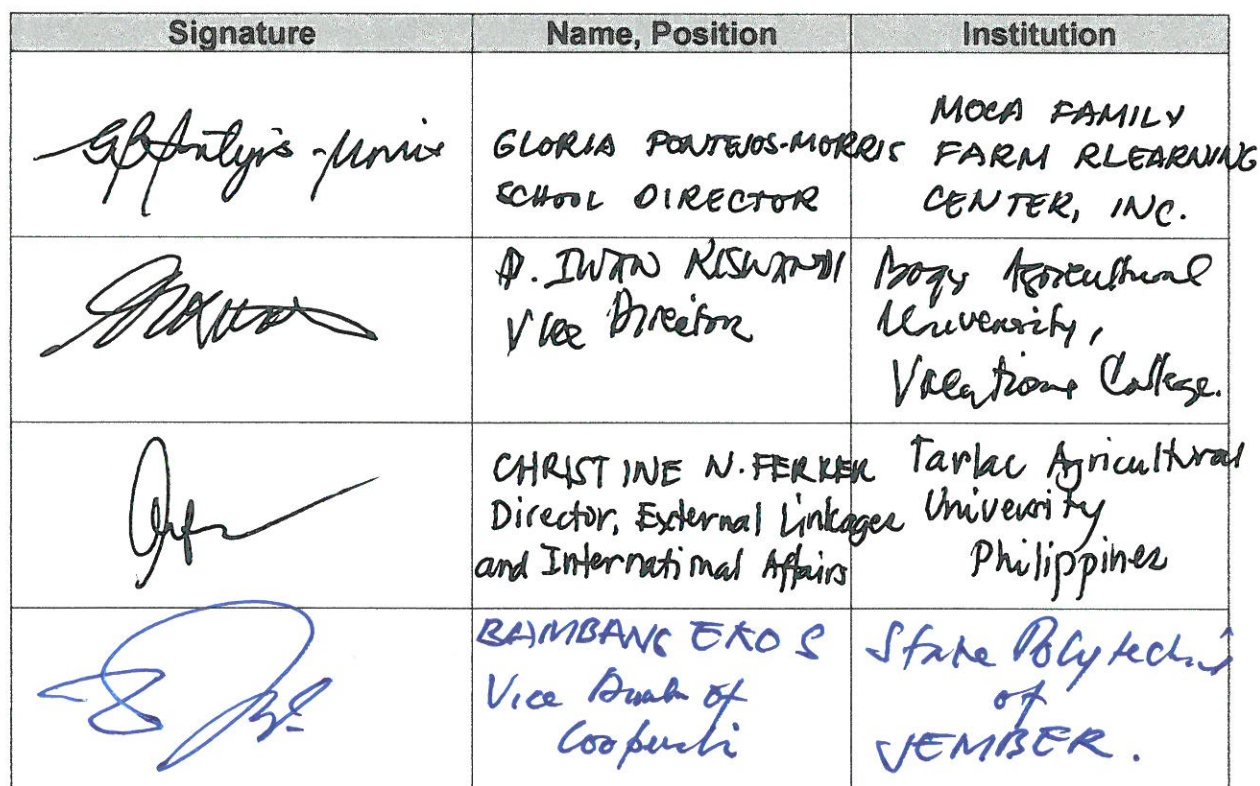 Signature Name, Position Institution
GLORIA PONTEJOS-MORRIS
SCHOOL DIRECTOR
MOCA FAMILY
FARM RLEARNING
CENTER, INC.
IWAN RISWANDI
Vice Director
Agricultural
University,
College.
CHRISTINE N. FERRER
Director, External Linkages
and International Affairs
Tarlac Agricultural
University
Philippines
BAMBANG EKO S
Vice of
State Polytechnic
of
JEMBER.